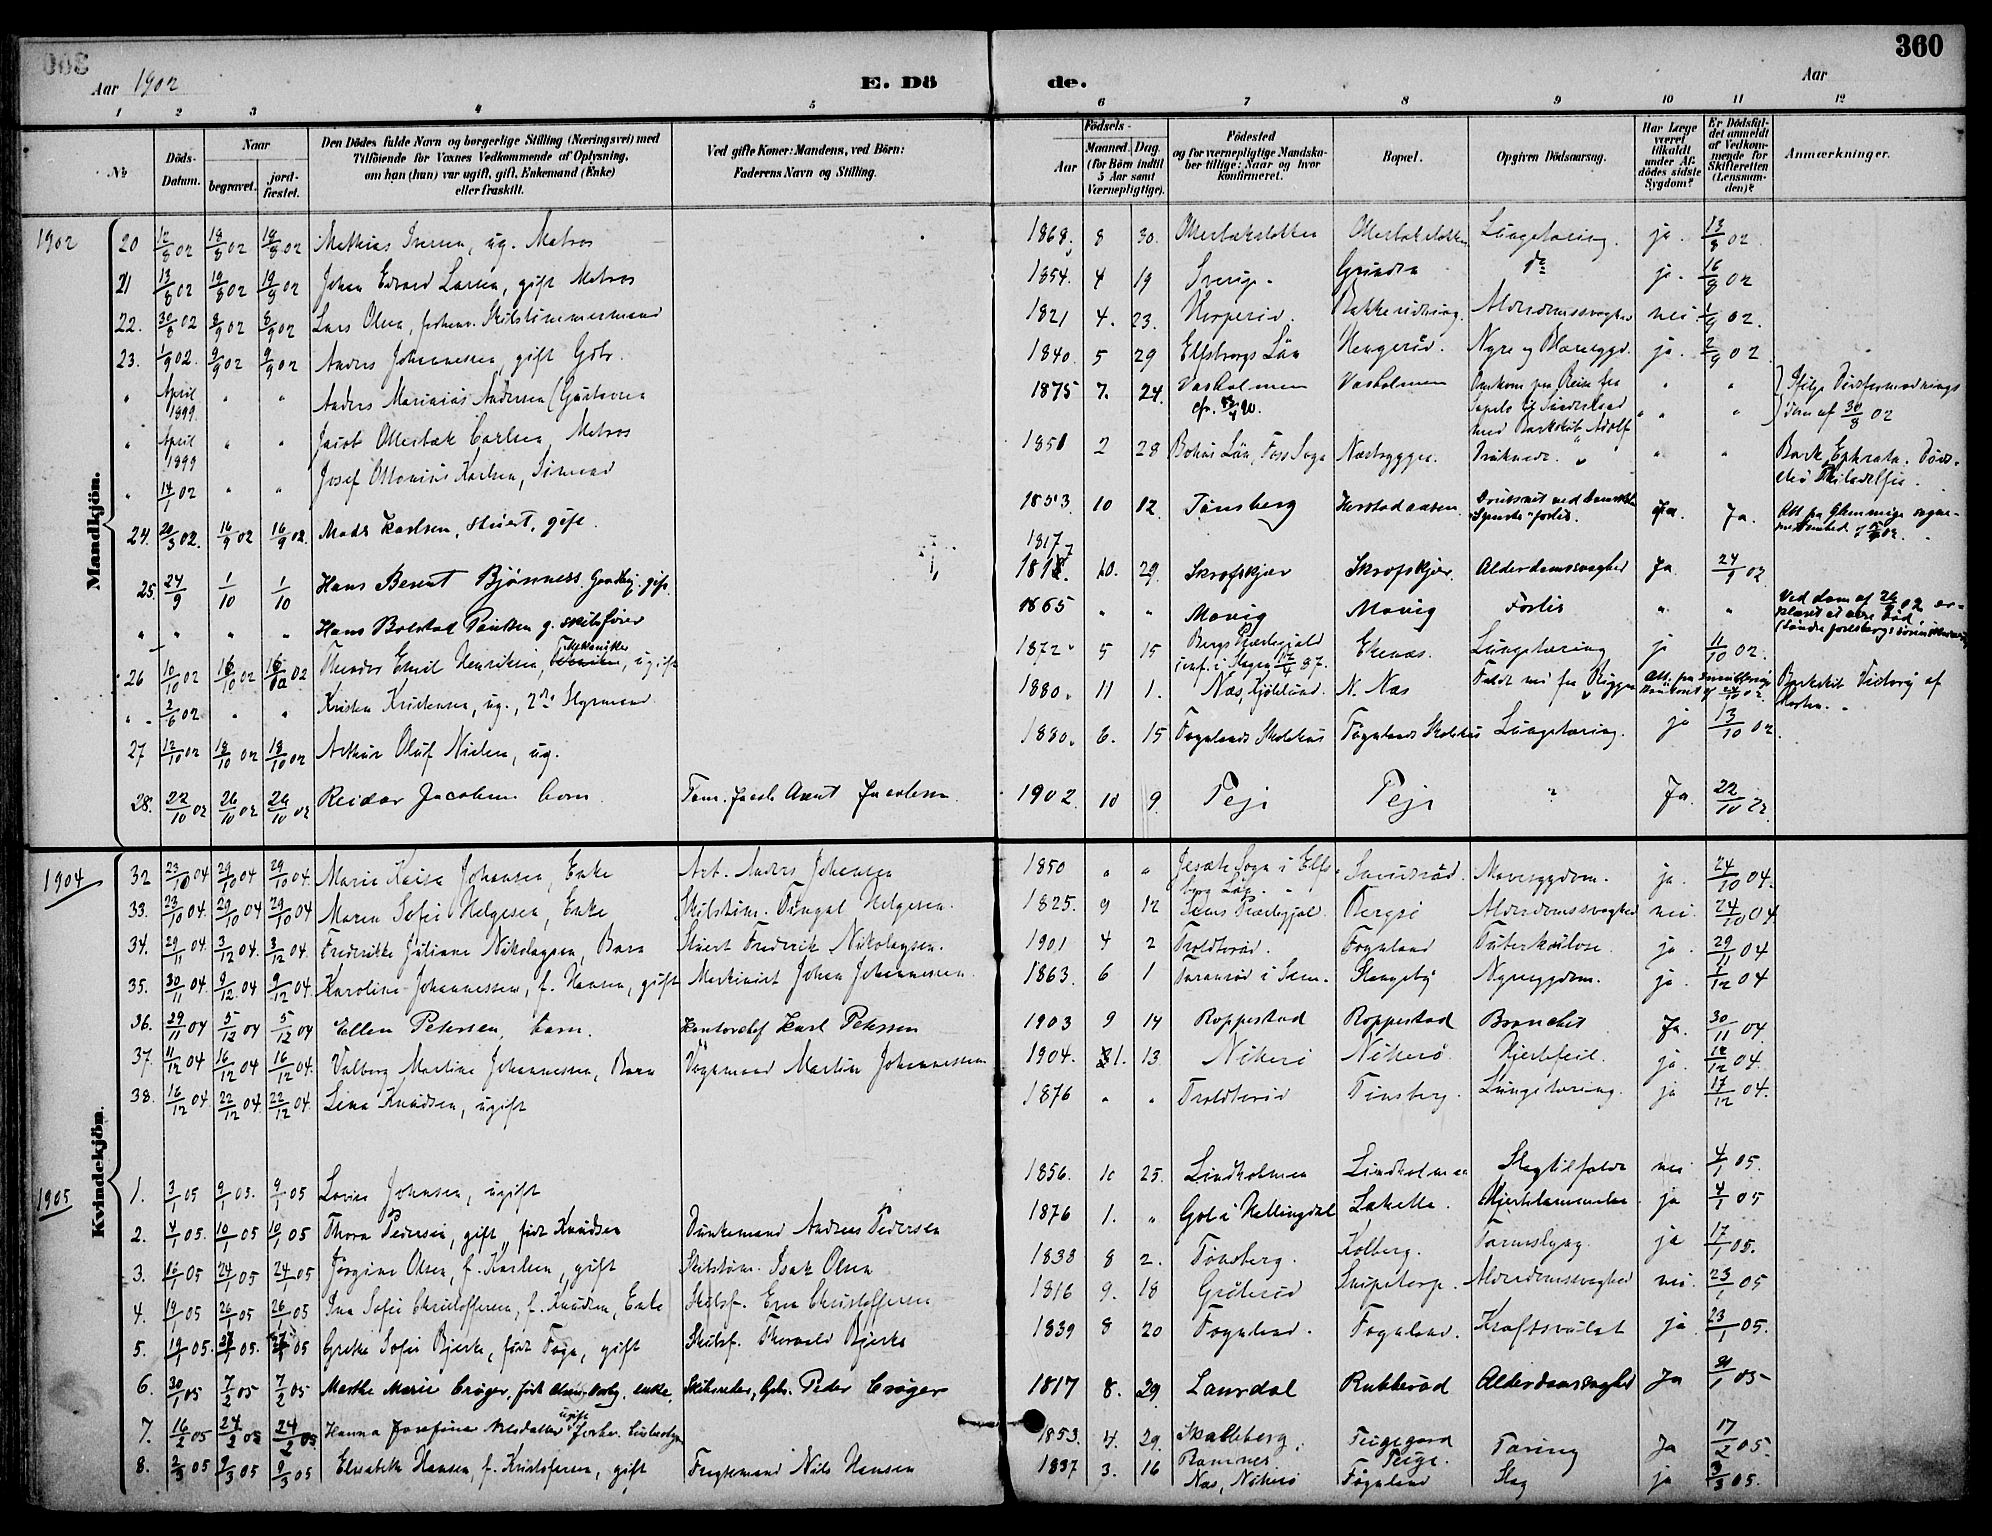 360
Aar 1902 E. Dö de. Aar
1 2 3 4 5 6 7 8 9 10 11 12
No Döds-Datum. Naar begravet. jordfæstet. Den Dödes fulde Navn og borgerlige Stilling (Næringsvei) med Tilföiende for Voxnes Vedkommende af Oplysning, om han (hun) var ugift, gift, Enkemand (Enke) eller fraskilt. Ved gifte Koner: Mandens, ved Börn: Faderens Navn og Stilling. Födsels- Aar Maaned. Dag. (for Börn indtil 5 Aar samt Værnepligtige). Födested og for værnepligtige Mandskaber tillige: Naar og hvor konfirmeret. Bopæl. Opgiven Dödsaarsag. Har Læge været tilkaldt under Afdödes sidste Sygdom? Er Dödsfaldet anmeldt af Vedkommende for Skifteretten (Lensmanden)? Anmærkninger.
Mandkjön.
1902 20 12/8 02 18/8 02 18/8 02 Mathias Iversen, ug. Matros 1868 8 30 Lungetæring. ja. 13/8 02
21 13/8 02 19/8 02 19/8 02 Johan Edvard Larsen, gift Matros 1854. 4 19 Sverige. Grindra do ja. 16/8 02
22. 30/8 02 8/9 02 8/9 02 Lars Olsen, Skibstømmermand 1821 4. 23. Alderdomssvaghed nei. 1/9 02.
23. 1/9 02. 9/9 02 9/9 02 Anders Johannessen, gift Gbr. 1840. 5 29 Elfsborgs Län Hengerød. Nyre og Blæresygd. ja. 2/9 02
" April 1899. " " Anders Marinius Andersen (Gustavsen 1875 7. 24. Vasholmen Vasholmen Omkom paa Reise fra " " Ifølge Dødsformodnings
til Sunderland med Barkskib "Adolf" dom af 30/8 02
" April 1899 " " Jacob Ollestak Carlsen, Matros 1851 2 28 Bohus Län, Foss Sogn Druknede. " " Bark Ephrata. Phildelfia.
" 14/1 02 " " Josef Ottonius Karlsen, Sømand 1853 10 02 Tønsberg Druknet ved forlis. Ja. Ja.
24. 20/3 02. 16/9 02 16/9 02 Mads Karlsen, skuest, gift. 1817
25 24/9 1/10 1/10 Hans Berent Bjønness, Gaardbr., gift. 1818. 10. 29. Skrofskjær Skrofskjær Alderdomssvaghed Ja. 24/9 02
" " " " Hans Bolstad Paulsen g. skibsfører 1865 " " Movig Movig Forlis " " Ved dom af 26/9 02
26 10/10 02 16/10 02 16/10 02 Theodor Emil Henriksen, ugift 1872 5 15 Bergs Præstegjeld conf. i Slagen 87. Ekenæs. Lungetæring ja 11/10 02.
" 2/6 02 " " Kristen Kristensen, ug., 2den Styrmand 1880. 11 1. Næs, Kjølelund. N. Næs Faldt ned fra Riggen Barkskib Victory af
27 12/10 02 18/10 02 18/10 02 Arthur Oluf Nielsen, ug. 1880. 6. 15 Føynlands Skolehus Føynlands Skolehus Lungetæring. ja 13/10 02
28. 22/10 02 26/10 02 26/10 02 Reidar Jacobsen barn. Tøm. Jacob Aant Jacobsen. 1902. 10 9. Teje Teje " Ja. 22/10 02
Kvindekjön.
1904 32 23/10 04 29/10 04 29/10 04. Marie Kaisa Johansen, Enke Arb. Anders Johansen 1850 " " Sogn i Elfsborg Län. Mavesygdom. ja. 24/10 04.
33. 23/10 04. 29/10 04 29/10 04 Maren Sofie Helgesen, Enke Skibstøm. Helgesen. 1825. 9 12 Sems Præstegjæld. Bergsø Alderdomssvaghed nei 24/10 04
34. 29/11 04. 3/12 04 3/12 04. Fredrikke Juliane Nikolaysen, Barn Stuert Frederik Nikolaysen. 1901 4 2 Troldtorød. Føynland Tuberkulose. ja. 29/11 04
35. 30/11 04. 9/12 04 9/12 04. Karoline Johannessen, f. Hansen, gift Maskinist Johan Johannessen. 1863. 6 1 i Sem. Slangeby Nyresygdom. ja. 1/12 04
36. 29/11 04 5/12 04 5/12 04 Ellen Petersen, barn. Kontorchef Karl Petersen 1903 9 14 Roppestad Roppestad Bronchit Ja. 30/11 04.
37. 11/12 04 16/12 04 16/12 04. Valborg Martine Johannessen, Barn Vognmand Martin Johannessen 1904. 1. 13 Nøterø Nøterø Hjertefeil. ja. 12/12 04.
38. 16/12 04 22/12 04. 22/12 04. Lina Knudsen, ugift 1876 " " Troldtorød Tønsberg. Lungetæring. ja 17/12 04.
1905 1. 3/1 05 9/1 05. 9/1 05 Lovise Johnsen, ugift 1856. 10 25. Lindholmen Lindholmen Slagtilfælde nei 4/1 05.
2. 4/1 05. 10/1 05 10/1 05 Thora Pedersen, gift, født Knudsen Dunkemand Andreas Pedersen 1876 1. " Gol i Hallingdal Hjertelammelse. ja 4/1 05
3. 16/1 05 24/1 05 24/1 05 Jørgine Olsen, f. Karlsen, gift Skibstøm. Isak Olsen 1838 8 2. Tønsberg. Kolberg. Tarmslyng. ja 17/1 05.
4. 19/1 05 26/1 05 26/1 05 Ina Sofie Christoffersen, f. Knudsen, Enke Skibsf. Even Christoffersen 1816 9. 18 Grøterød Snipetorp. Alderdomssvaghed nei. 23/1 05
5. 19/1 05. 27/1 05. 27/1 05 Grethe Sofie Bjerke, født Føyn, gift Skibsf. Thorvald Bjerke 1839 8 20 Føynland. Føynland. Kræftsvulst ja 23/1 05.
6. 30/1 05 7/2 05 7/2 05 Marthe Marie Crøger, født enke. Skibsreder, Gbr. Peder Crøger 1817 8. 29 Laurdal Rubberød Alderdomssvaghed Ja 31/1 05
7. 16/2 05 24/2 05 24/2 05. Hanna Josefine Nilsdatter ugift 1853. 4. 29. Skalleberg, Ramnes Teigegaard Teige. Tæring Ja 17/2 05
8. 2/3 05 9/3 05 9/3 05 Elisabeth Hansen, f. Kristofersen, gift Fragtemand Nils Hansen 1837 3. 16 Næs, Nøterø Føynland Slag ja 3/3 05.